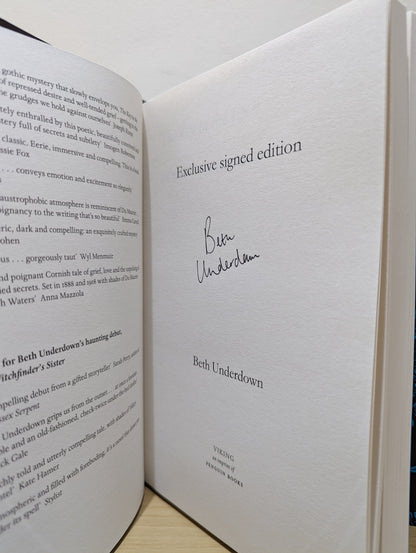 gothic mystery that slowly envelops you, The
of repressed desire and well-deep grief
e grudges we hold against ourselves' Joseph Knox
tely enthralled by this poetic, beautifully
stery full of secrets and subtlety' Imogen
classic. Eerie, immersive and compelling.
ssie Fox
. . . conveys emotion and excitement as elegantly
austrophobic atmosphere is reminiscent of Du Maurier
oignancy to the writing that's so beautiful' Emma Carroll
eric, dark and compelling: an exquisitely crafted mystery
ohen
us . . . gorgeously taut' Wyl Menmuir
nd poignant Cornish tale of grief, love and the
ied secrets. Set in 1888 and 1918 with shades of Du Maurier
h Waters' Anna Mazzola
for Beth Underdown's haunting debut,
itchfinder's Sister
mpelling debut from a gifted storyteller' Sarah Perry,
ssex Serpent
Underdown grips us from the outset . . .
ple and an old-fashioned, check-twice-under-the-bed
ck Gale
chly told and utterly compelling tale, with shades of
ntel' Kate Hamer
mospheric and filled with foreboding, it is a novel that
der its spell' Stylist
Exclusive signed edition
Beth
Underdown
Beth Underdown
VIKING
an imprint of
PENGUIN BOOKS